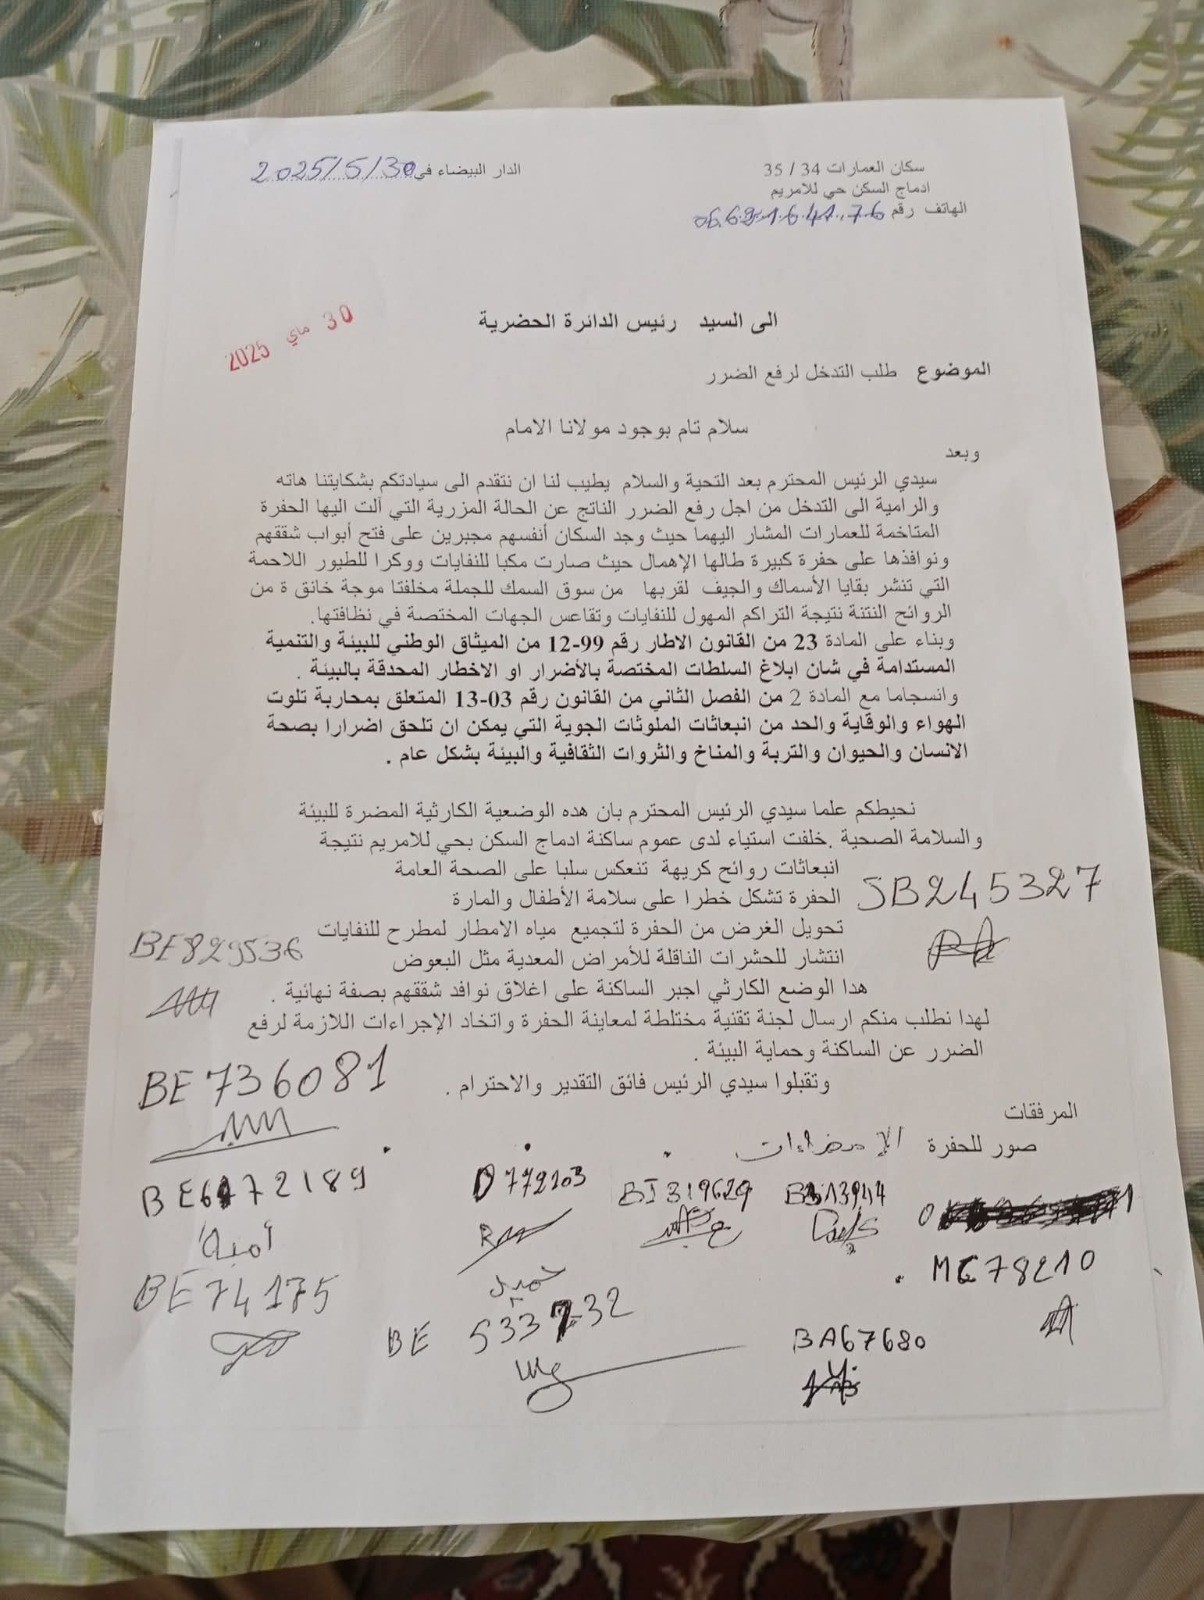 سكان العمارات 34 / 35
الدار البيضاء في 2025/5/30
ادماج السكن حي للامريم
الهاتف رقم
30 ماي 2025
الى السيد رئيس الدائرة الحضرية
الموضوع طلب التدخل لرفع الضرر
سلام تام بوجود مولانا الامام
وبعد
سيدي الرئيس المحترم بعد التحية والسلام يطيب لنا ان نتقدم الى سيادتكم بشكايتنا هاته
والرامية الى التدخل من اجل رفع الضرر الناتج عن الحالة المزرية التي آلت اليها الحفرة
المتاخمة للعمارات المشار اليهما حيث وجد السكان أنفسهم مجبرين على فتح أبواب شققهم
ونوافذها على حفرة كبيرة طالها الإهمال حيث صارت مكبا للنفايات ووكرا للطيور اللاحمة
التي تنشر بقايا الأسماك والجيف لقربها من سوق السمك للجملة مخلفتا موجة خانق ة من
الروائح النتنة نتيجة التراكم المهول للنفايات وتقاعس الجهات المختصة في نظافتها.
وبناء على المادة 23 من القانون الاطار رقم 99-12 من الميثاق الوطني للبيئة والتنمية
المستدامة في شان ابلاغ السلطات المختصة بالأضرار او الاخطار المحدقة بالبيئة .
وانسجاما مع المادة 2 من الفصل الثاني من القانون رقم 03-13 المتعلق بمحاربة تلوت
الهواء والوقاية والحد من انبعاثات الملوثات الجوية التي يمكن ان تلحق اضرارا بصحة
الانسان والحيوان والتربة والمناخ والثروات الثقافية والبيئة بشكل عام .
نحيطكم علما سيدي الرئيس المحترم بان هده الوضعية الكارثية المضرة للبيئة
والسلامة الصحية .خلفت استياء لدى عموم ساكنة ادماج السكن بحي للامريم نتيجة
انبعاثات روائح كريهة تنعكس سلبا على الصحة العامة
الحفرة تشكل خطرا على سلامة الأطفال والمارة
JB245327
تحويل الغرض من الحفرة لتجميع مياه الامطار لمطرح للنفايات
BE829536
انتشار للحشرات الناقلة للأمراض المعدية مثل البعوض
هدا الوضع الكارثي اجبر الساكنة على اغلاق نوافد شققهم بصفة نهائية .
لهدا نطلب منكم ارسال لجنة تقنية مختلطة لمعاينة الحفرة واتخاد الإجراءات اللازمة لرفع
الضرر عن الساكنة وحماية البيئة .
BE736081
وتقبلوا سيدي الرئيس فائق التقدير والاحترام .
المرفقات
صور للحفرة الإمضاءات
BI319629
D772103
أمينة
MC78210
BE74175
حميد
BE 533732
BA67680